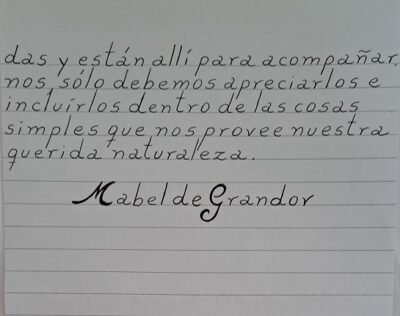 das y están allí para acompañar.
nos, sólo debemos apreciarlos e
incluírlos dentro de las cosas
simples que nos provee nuestra
querida naturaleza.
Mabel de Grandov